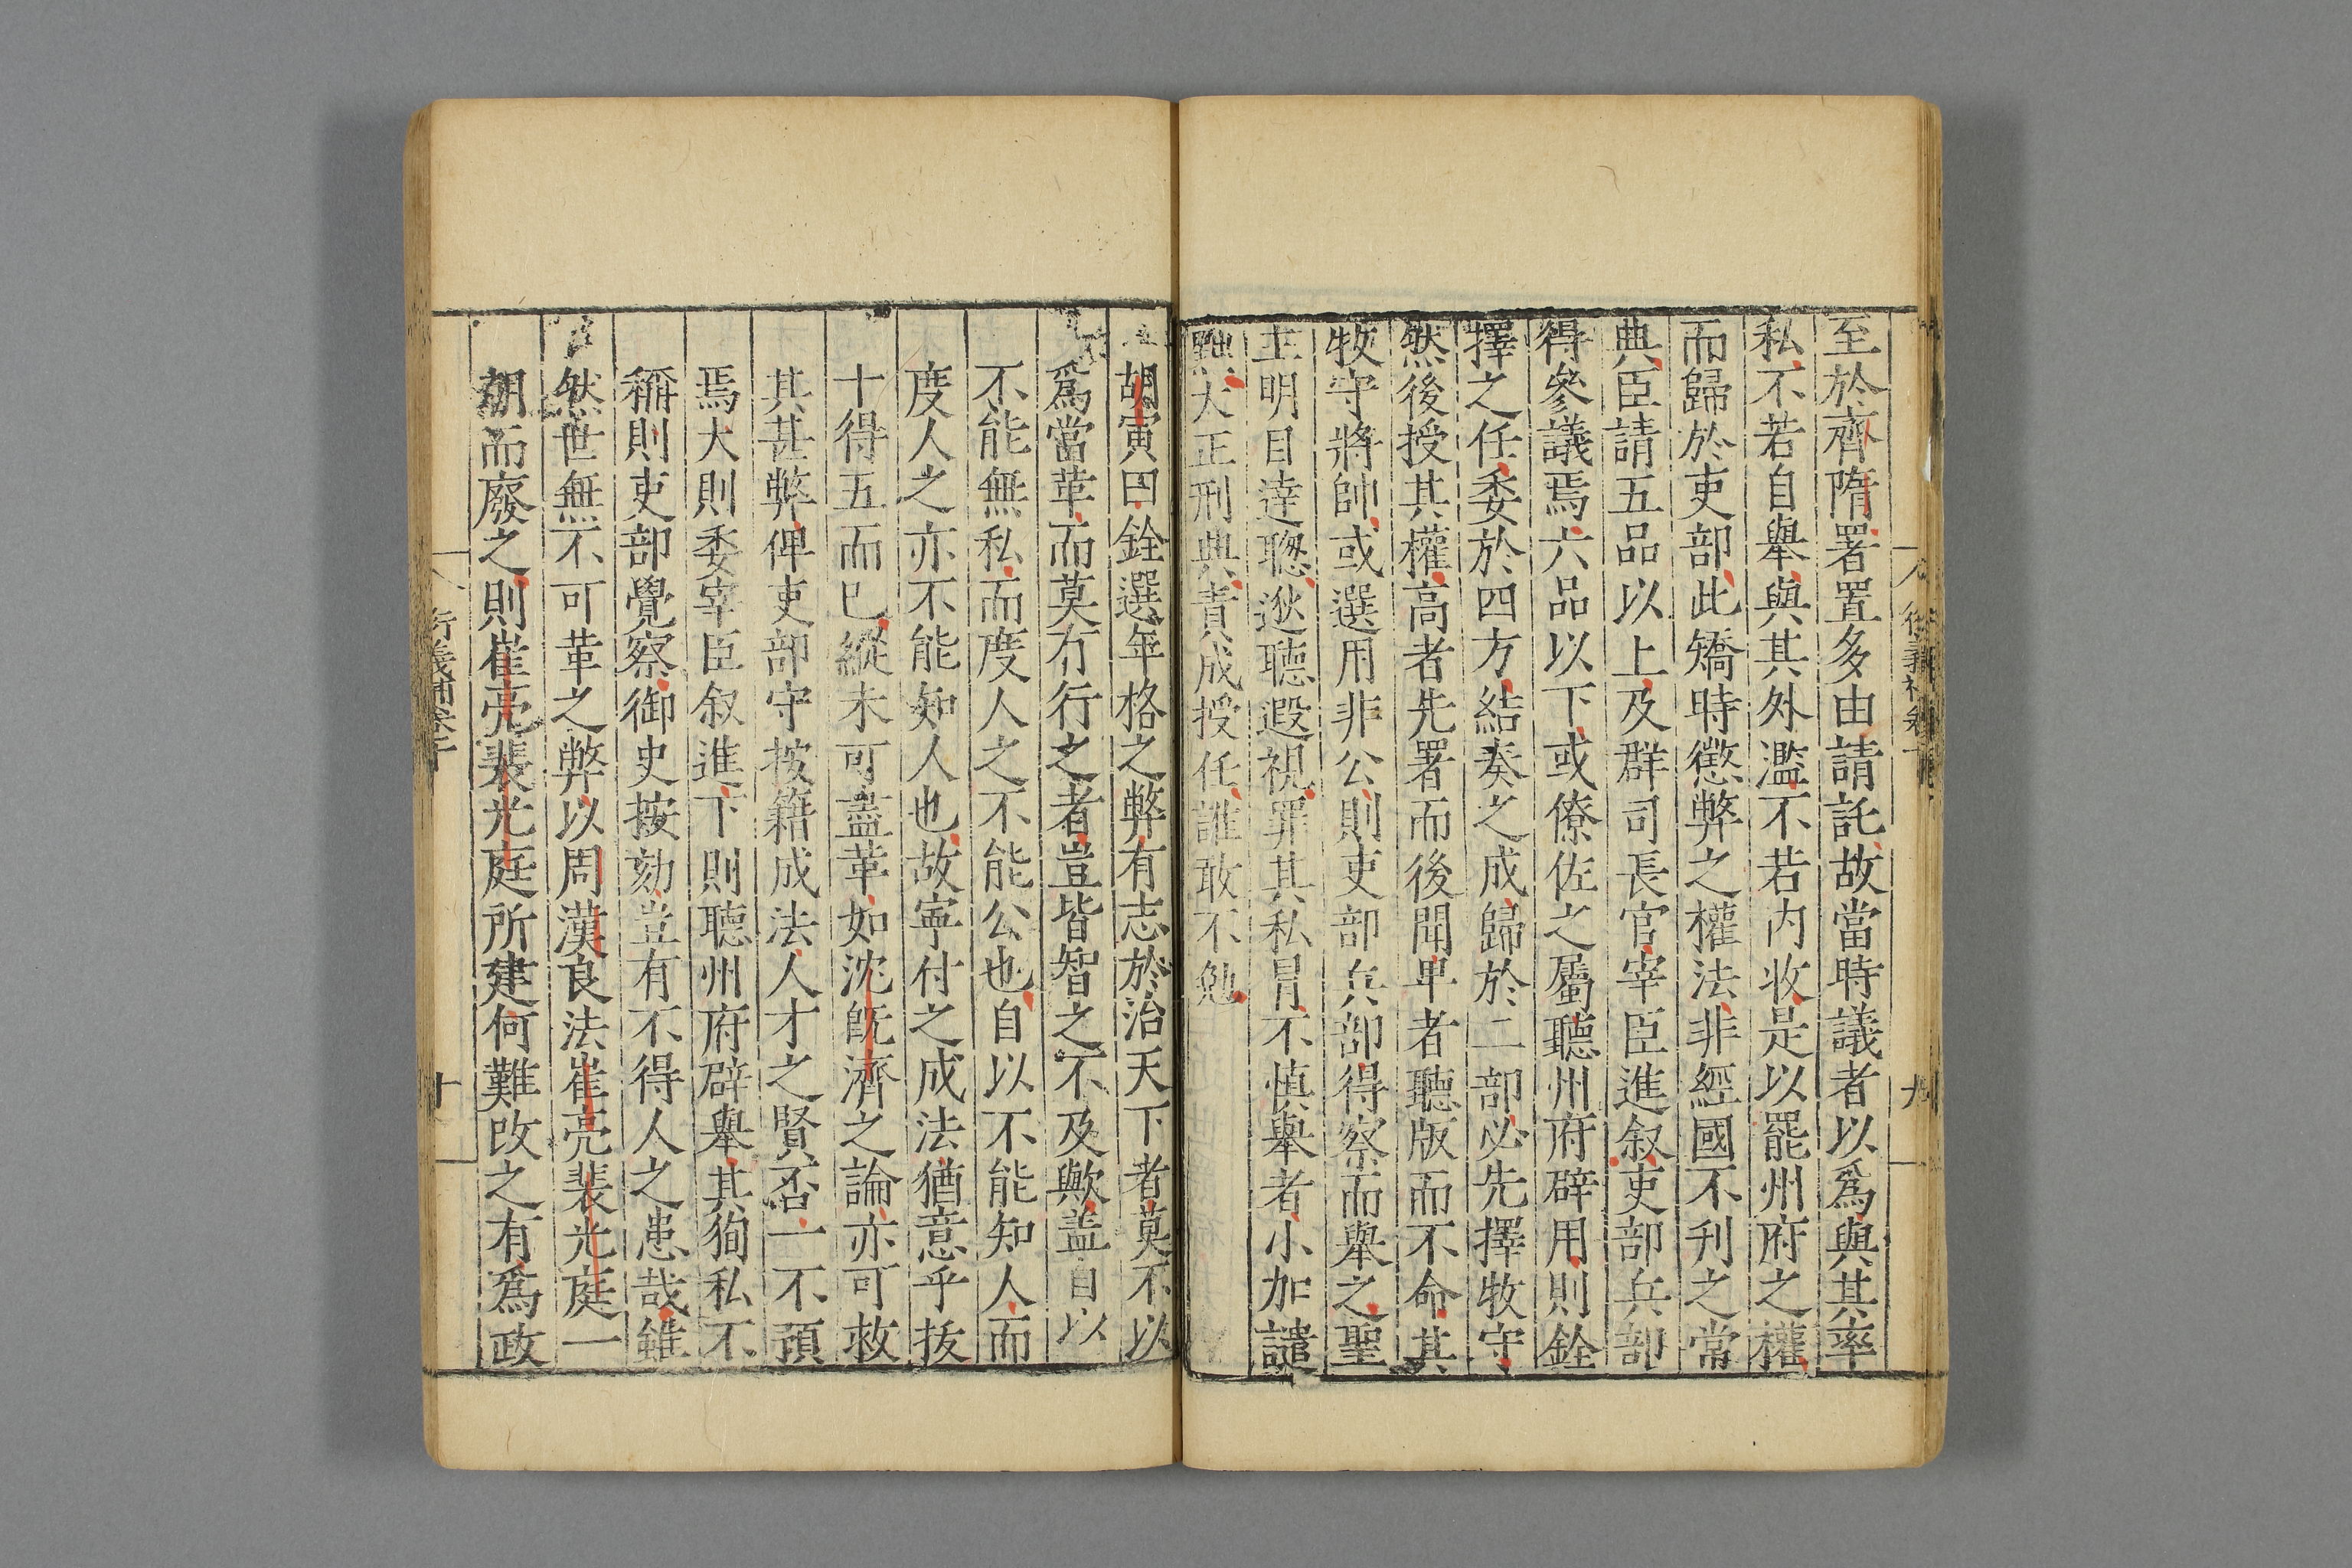 至於齊隋署置多由請託故當時議者以爲與其率
私不若自舉與其外濫不若内收是以罷州府之權
而歸於吏部此矯時懲弊之權法非經國不刊之常
典臣請五品以上及群司長官宰臣進叙吏部兵部
得參議焉六品以下或僚佐之屬聽州府辟用則銓
擇之任委於四方結奏之成歸於二部必先擇牧守
然後授其權高者先署而後聞卑者聽版而不命其
牧守將帥或選用非公則吏部兵部得察而舉之聖
主明目達聰逖聽遐視罪其私冒不慎舉者小加譴
黜大正刑典責成授任誰敢不勉
九
胡寅曰銓選年格之弊有志於治天下者莫不以
爲當革而莫有行之者豈皆智之不及歟盖自以
不能無私而度人之不能公也自以不能知人而
度人之亦不能知人也故寧付之成法猶意乎拔
十得五而已縱未可盡革如沈旣濟之論亦可救
其甚弊俾吏部守按籍成法人才之賢否一不預
焉大則委宰臣叙進下則聽州府辟舉其徇私不
稱則吏部覺察御史按劾豈有不得人之患哉雖
然世無不可革之弊以周漢良法崔亮裴光庭一
朝而廢之則崔亮裴光庭所建何難改之有爲政
衍義補卷十
十